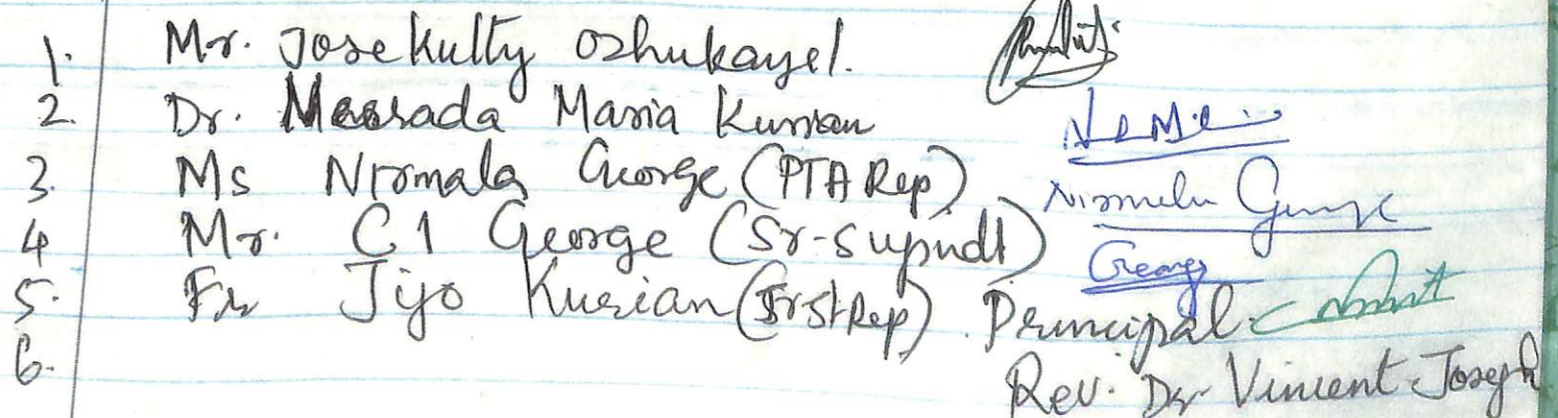 1. Mr. Josekutty Ozhukayel.
2. Dr. Maria Kurian
3. Ms Nirmala George (PTA Rep) Nirmala George
4 Mr. C1 George (Sr-Supndt) George
5. Fr Jijo Kurian (Rep). Principal
6. Rev. Dr Vincent Joseph